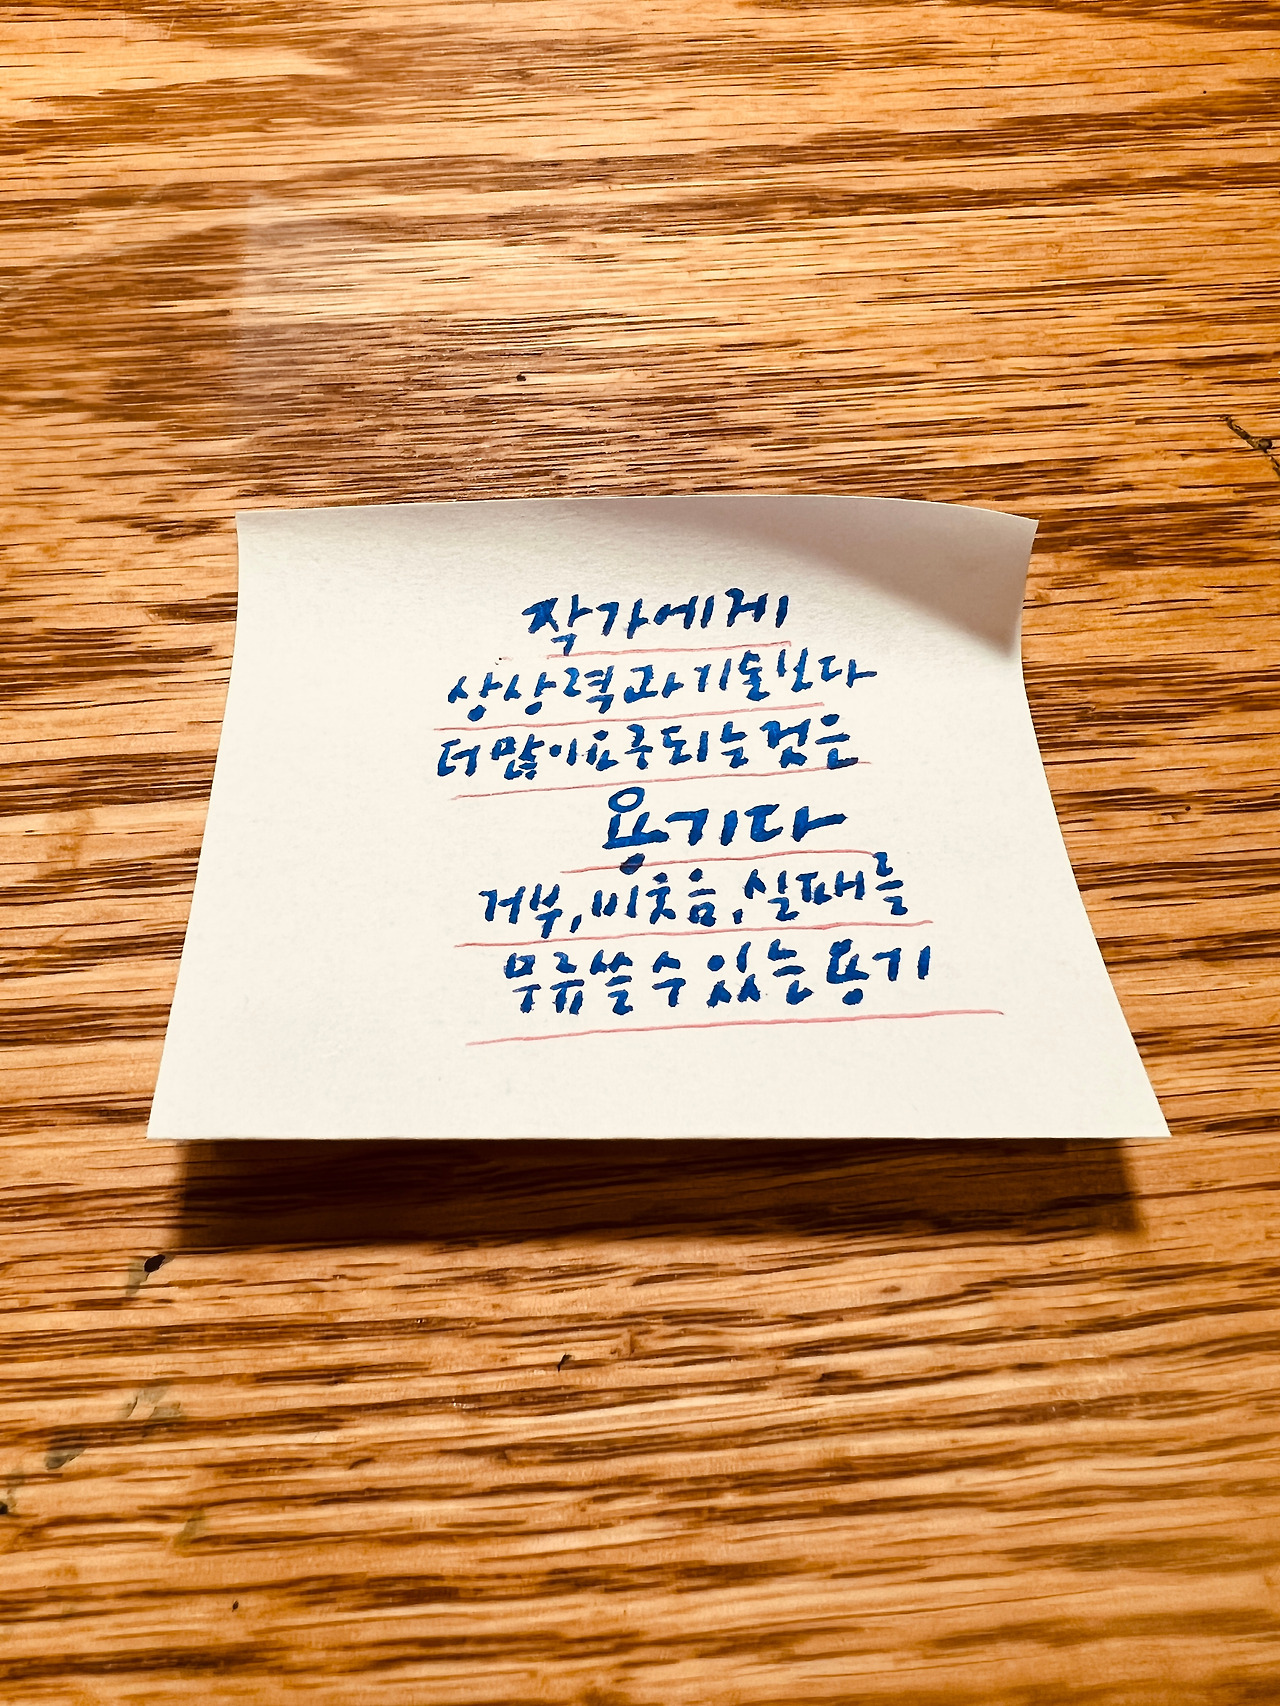 작가에게
상상력과 기술보다
더 많이 요구되는 것은
용기다
거부, 비웃음, 실패를
무릅쓸 수 있는 용기